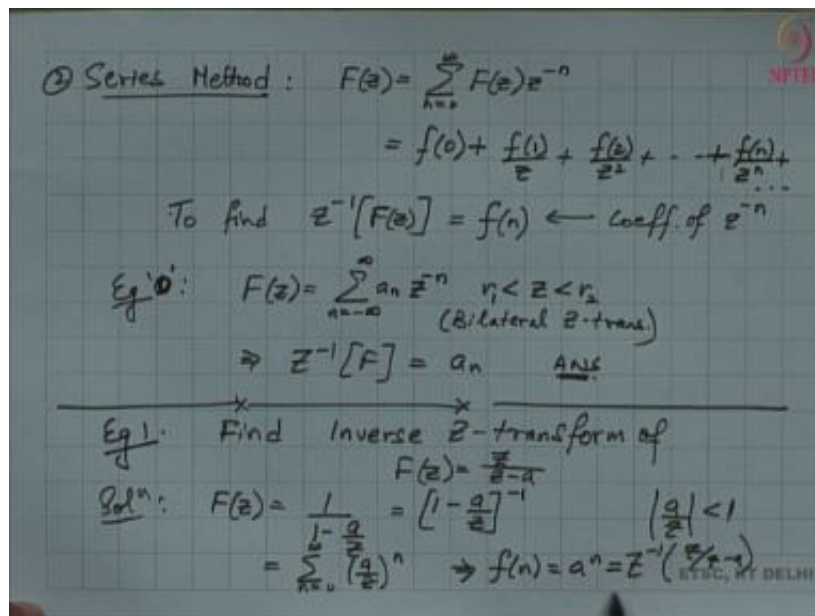 NPTEL
② Series Method : F(z) = ∑_{n=0}^{∞} F(z) z^{-n}
= f(0) + f(1)/z + f(2)/z² + - - + f(n)/z^n + ...
To find z^{-1}[F(z)] = f(n) ← coeff. of z^{-n}
Eg '0': F(z) = ∑_{n=-∞}^{∞} a_n z^{-n} r₁ < z < r₂
(Bilateral Z-trans.)
⇒ Z^{-1}[F] = a_n ANS
Eg 1. Find Inverse Z-transform of
F(z) = z/(z-a)
Solⁿ: F(z) = 1/(1 - a/z) = [1 - a/z]^{-1} |a/z| < 1
= ∑_{n=0}^{∞} (a/z)^n ⇒ f(n) = a^n = Z^{-1}(z/z-a)
ETSC, IIT DELHI